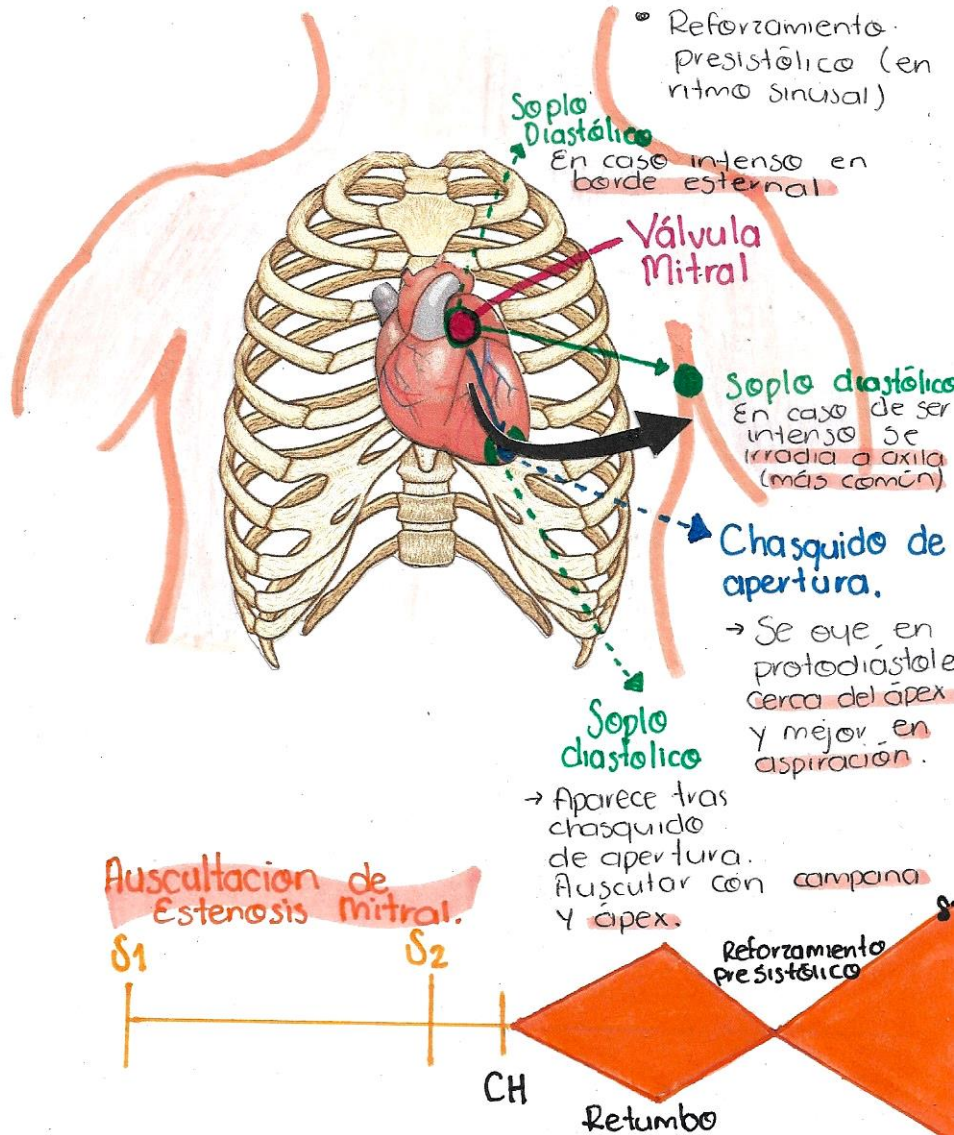 • Reforzamiento
presistólico (en
ritmo sinusal)
Soplo
Diastólico
En caso intenso en
borde esternal
Válvula
Mitral
Soplo diastólico
En caso de ser
intenso se
irradia a axila
(más común)
Chasquido de
apertura.
→ Se oye en
protodiástole
cerca del ápex
y mejor en
aspiración.
Soplo
diastolico
→ Aparece tras
chasquido
de apertura.
Auscultar con campana
y ápex.
Auscultacion de
Estenosis Mitral.
S1
S2
CH
Retumbo
Reforzamiento
presistólico